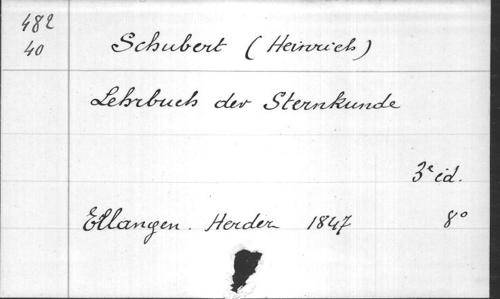 482
40
Schubert (Heinrich)
Lehrbuch der Sternkunde
3e éd.
Ellangen. Herder 1847 8°